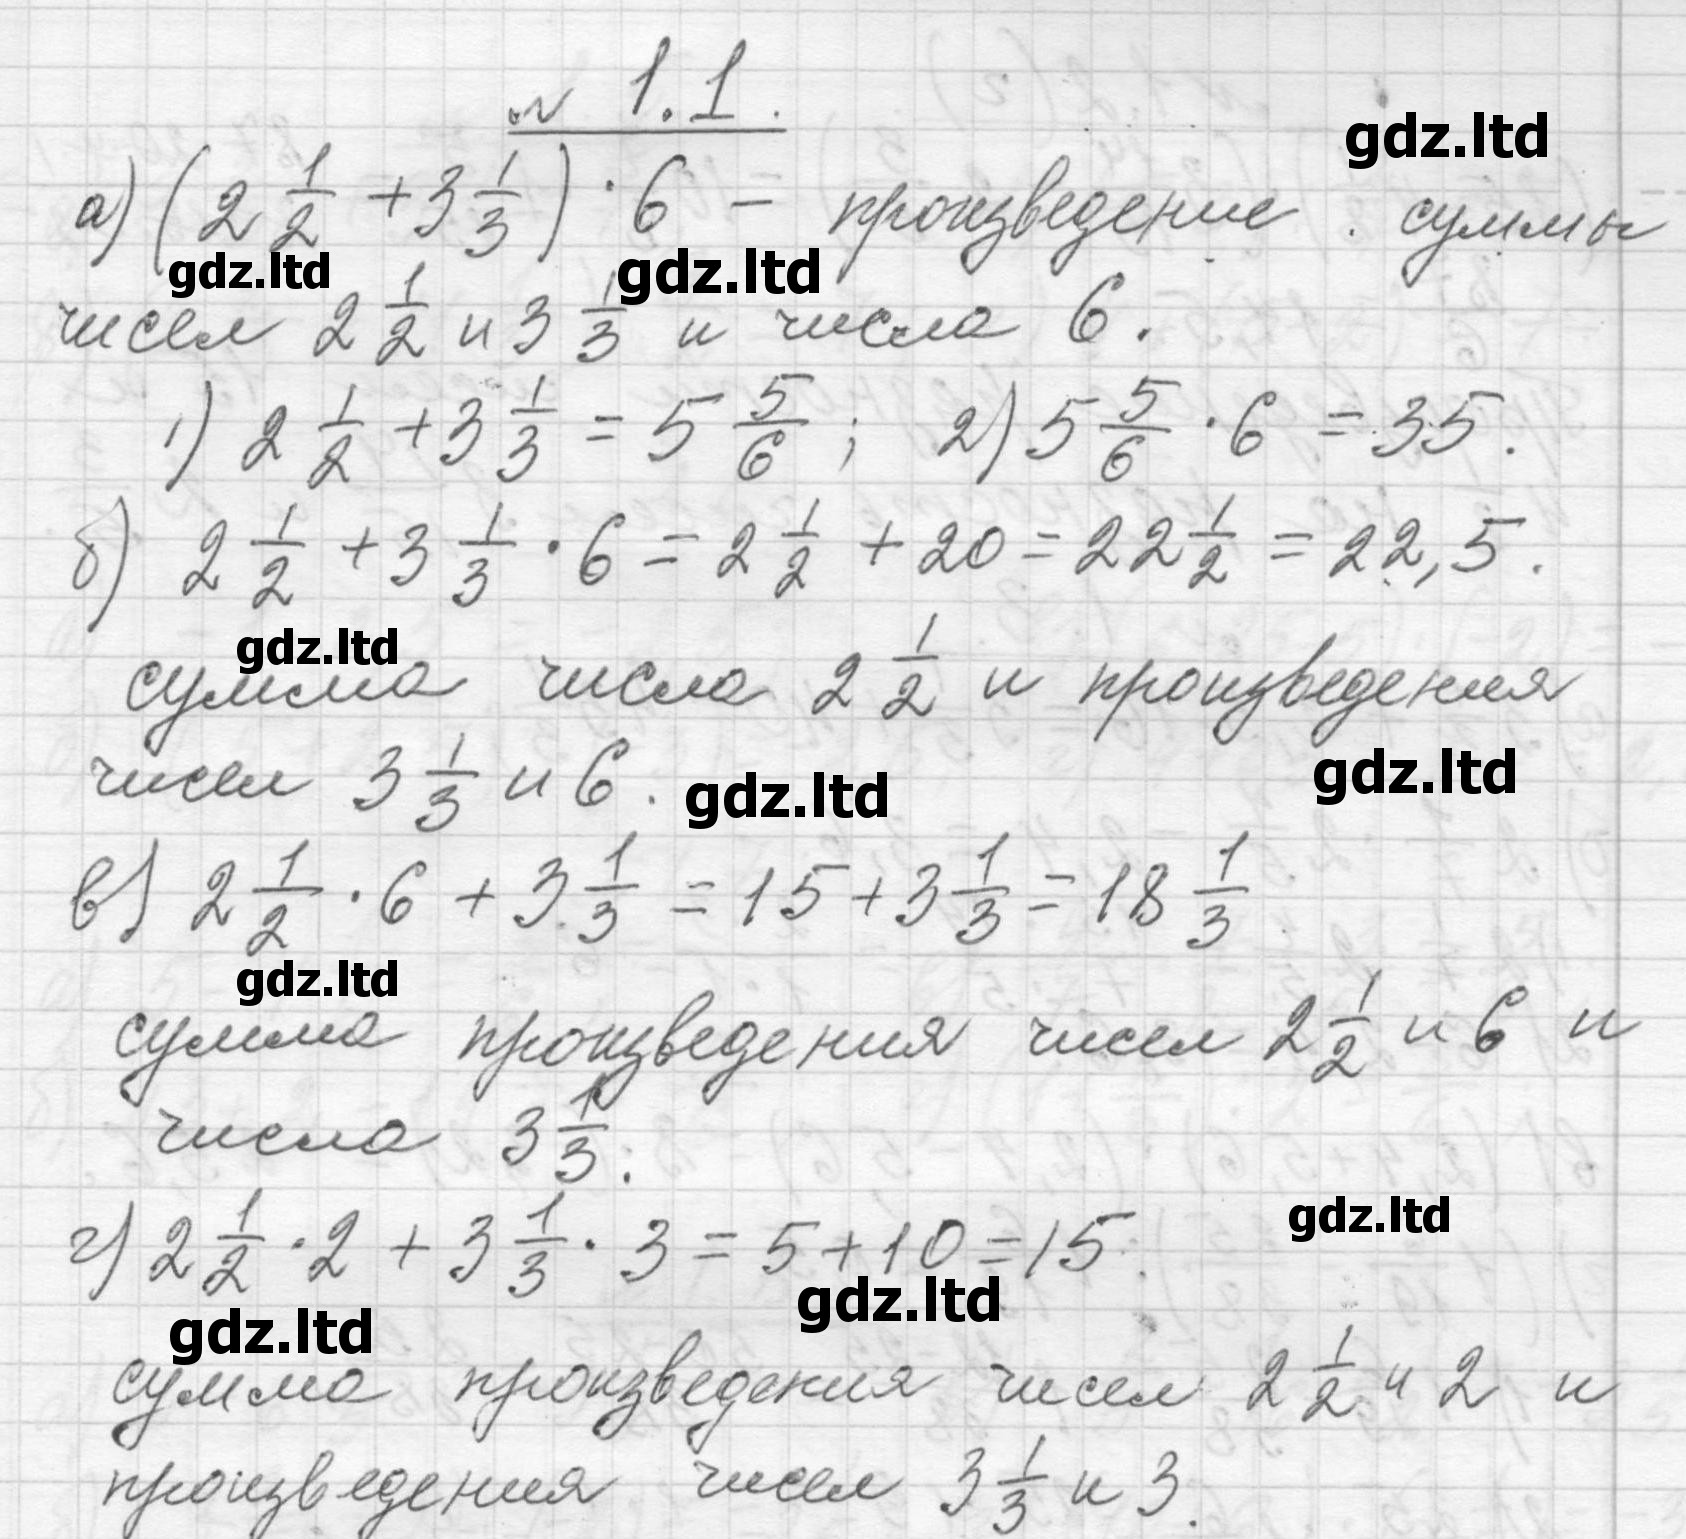 № 1.1.
gdz.ltd
а) (2 1/2 + 3 1/3) · 6 – произведение суммы
gdz.ltd gdz.ltd
чисел 2 1/2 и 3 1/3 и числа 6.
1) 2 1/2 + 3 1/3 = 5 5/6 ; 2) 5 5/6 · 6 = 35.
б) 2 1/2 + 3 1/3 · 6 = 2 1/2 + 20 = 22 1/2 = 22,5.
gdz.ltd
сумма числа 2 1/2 и произведения
чисел 3 1/3 и 6.
gdz.ltd gdz.ltd
в) 2 1/2 · 6 + 3 1/3 = 15 + 3 1/3 = 18 1/3
gdz.ltd
сумма произведения чисел 2 1/2 и 6 и
числа 3 1/3.
г) 2 1/2 · 2 + 3 1/3 · 3 = 5 + 10 = 15.
gdz.ltd
gdz.ltd gdz.ltd
сумма произведения чисел 2 1/2 и 2 и
произведения чисел 3 1/3 и 3.